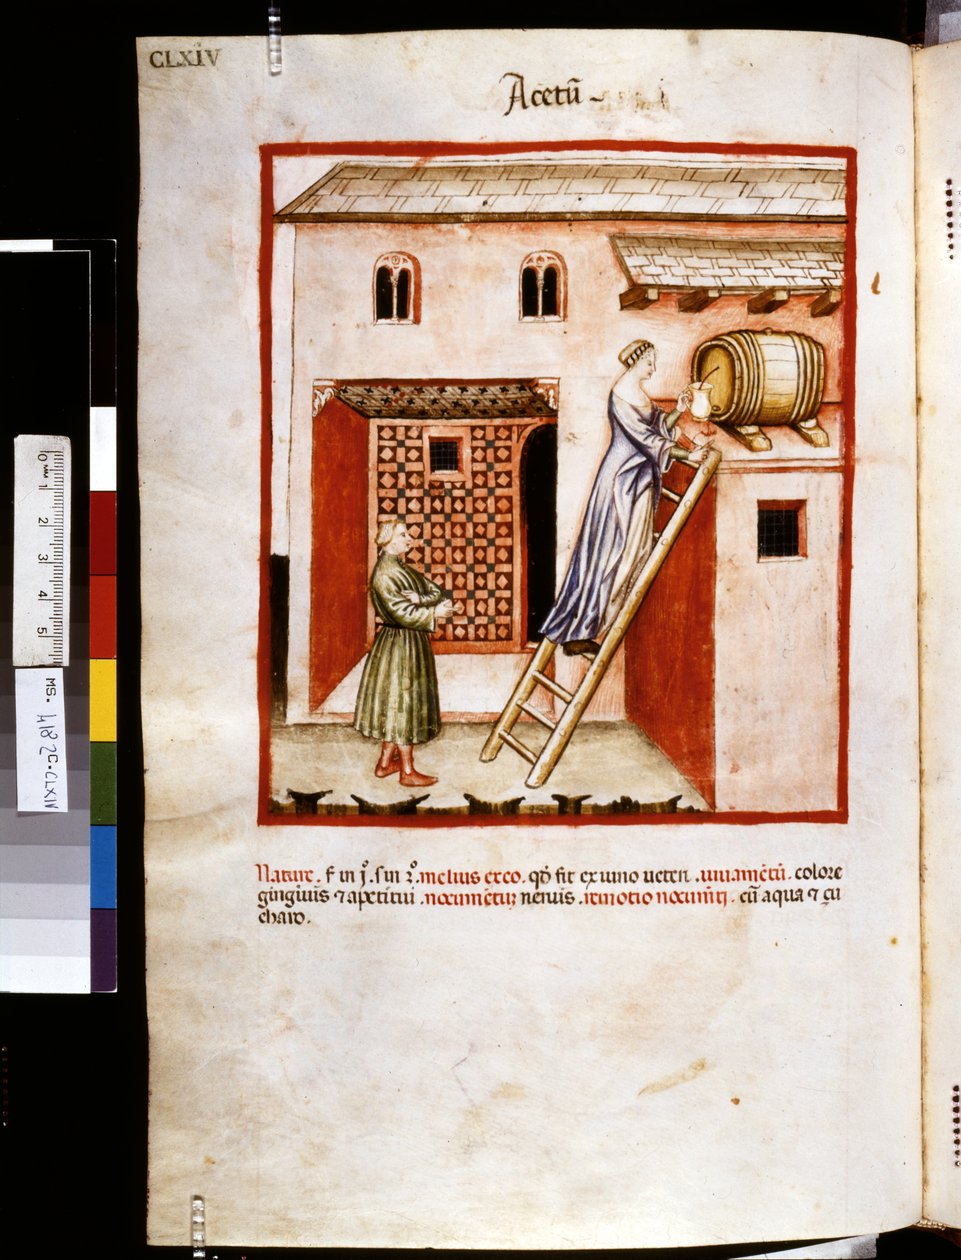 CLXIV
Acetū
Nature. f. in j°. sīn 2°. melius ex eo. qđ fit ex uino ueteri. iuuamētū. colore
gingiuis ⁊ apetitui. nocumētuȝ neruis. remotio nocumēti. cū aqua ⁊ çu
charo.
0 mm 1 2 3 4 5
MS. 4182C. CLXIV